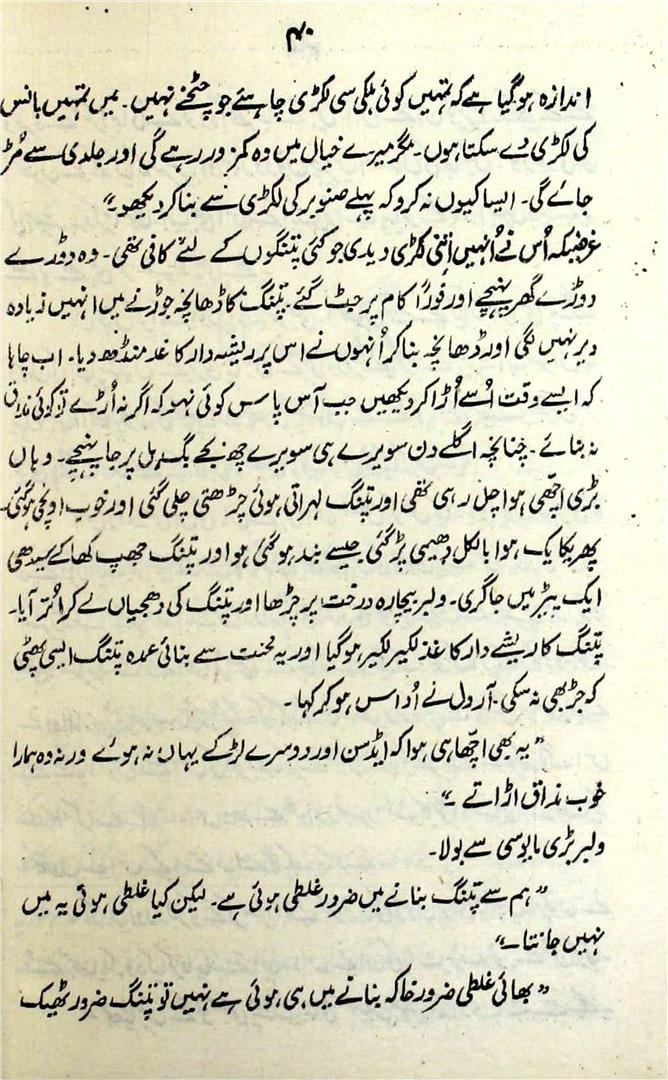 ۴۰
اندازہ ہوگیا ہے کہ تمہیں کوئی ہلکی سی لکڑی چاہئے جو چٹخے نہیں۔ میں تمہیں بانس
کی لکڑی دے سکتا ہوں۔ مگر میرے خیال میں وہ کمزور رہے گی اور جلدی سے مُڑ
جائے گی۔ ایسا کیوں نہ کرو کہ پہلے صنوبر کی لکڑی سے بنا کر دیکھو۔“
غرضیکہ اُس نے اُنہیں اتنی لکڑی دیدی جو کئی پتنگوں کے لئے کافی تھی۔ وہ دوڑے
دوڑے گھر پہنچے اور فوراً کام پر جٹ گئے۔ پتنگ کا ڈھانچہ جوڑنے میں انہیں زیادہ
دیر نہیں لگی اور ڈھانچہ بنا کر اُنہوں نے اس پر ریشہ دار کاغذ منڈھ دیا۔ اب چاہا
کہ ایسے وقت اُسے اُڑا کر دیکھیں جب آس پاس کوئی نہ ہو کہ اگر نہ اُڑے تو کوئی مذاق
نہ بنائے۔ چنانچہ اگلے دن سویرے ہی سویرے چھ بجے بگ ہل پر جا پہنچے۔ وہاں
بڑی اچھی ہوا چل رہی تھی اور پتنگ لہراتی ہوئی چڑھتی چلی گئی اور خوب اونچی ہوگئی۔
پھر یکایک ہوا بالکل دھیمی پڑ گئی جیسے بند ہو گئی ہو اور پتنگ جھپ کھا کے سیدھی
ایک پیڑ میں جاگری۔ ولبر بیچارہ درخت پر چڑھا اور پتنگ کی دھجیاں لے کر اُتر آیا۔
پتنگ کا ریشے دار کاغذ لکیر لکیر ہوگیا اور یہ محنت سے بنائی عمدہ پتنگ ایسی پھٹی
کہ جڑ بھی نہ سکی۔ آرول نے اُداس ہو کر کہا۔
”یہ بھی اچھا ہی ہوا کہ ایڈسن اور دوسرے لڑکے یہاں نہ ہوئے ورنہ وہ ہمارا
خوب مذاق اڑاتے۔“
ولبر بڑی مایوسی سے بولا۔
”ہم سے پتنگ بنانے میں ضرور غلطی ہوئی ہے۔ لیکن کیا غلطی ہوئی یہ میں
نہیں جانتا۔“
”بھائی غلطی ضرور خاکہ بنانے میں ہی ہوئی ہے نہیں تو پتنگ ضرور ٹھیک